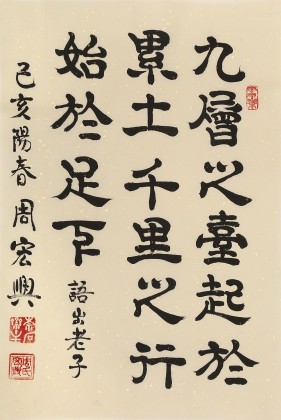 九層之臺起於
累土千里之行
始於足下
語出老子
己亥陽春周宏興